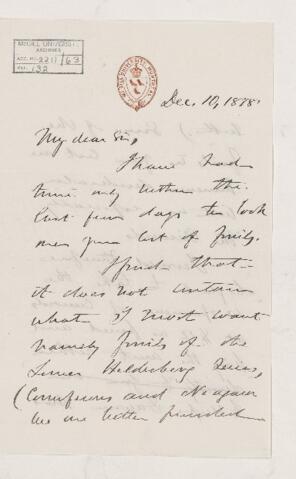 McGILL UNIVERSITY
ARCHIVES
ACC. NO. 2211/63
REF. 132
Dec. 10, 1888
My dear Sir,
I have had
time only within the
last few days to look
over your list of fossils.
I find that
it does not contain
what I most want
namely fossils of the
Lower Helderberg Series,
(Corniferous and Niagara
we are better furnished